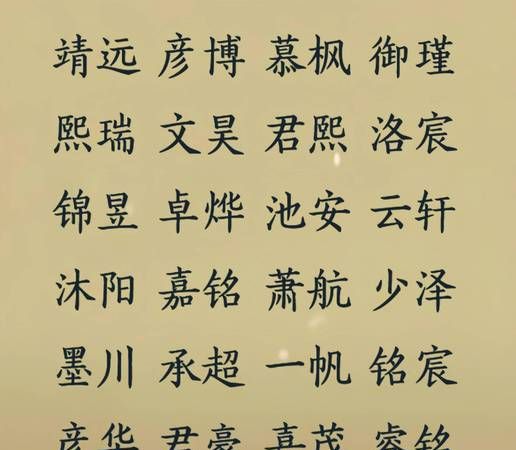 靖远 彦博 慕枫 御瑾
熙瑞 文昊 君熙 洛宸
锦昱 卓烨 池安 云轩
沐阳 嘉铭 萧航 少泽
墨川 承超 一帆 铭宸
彦华 君豪 嘉茂 睿铭